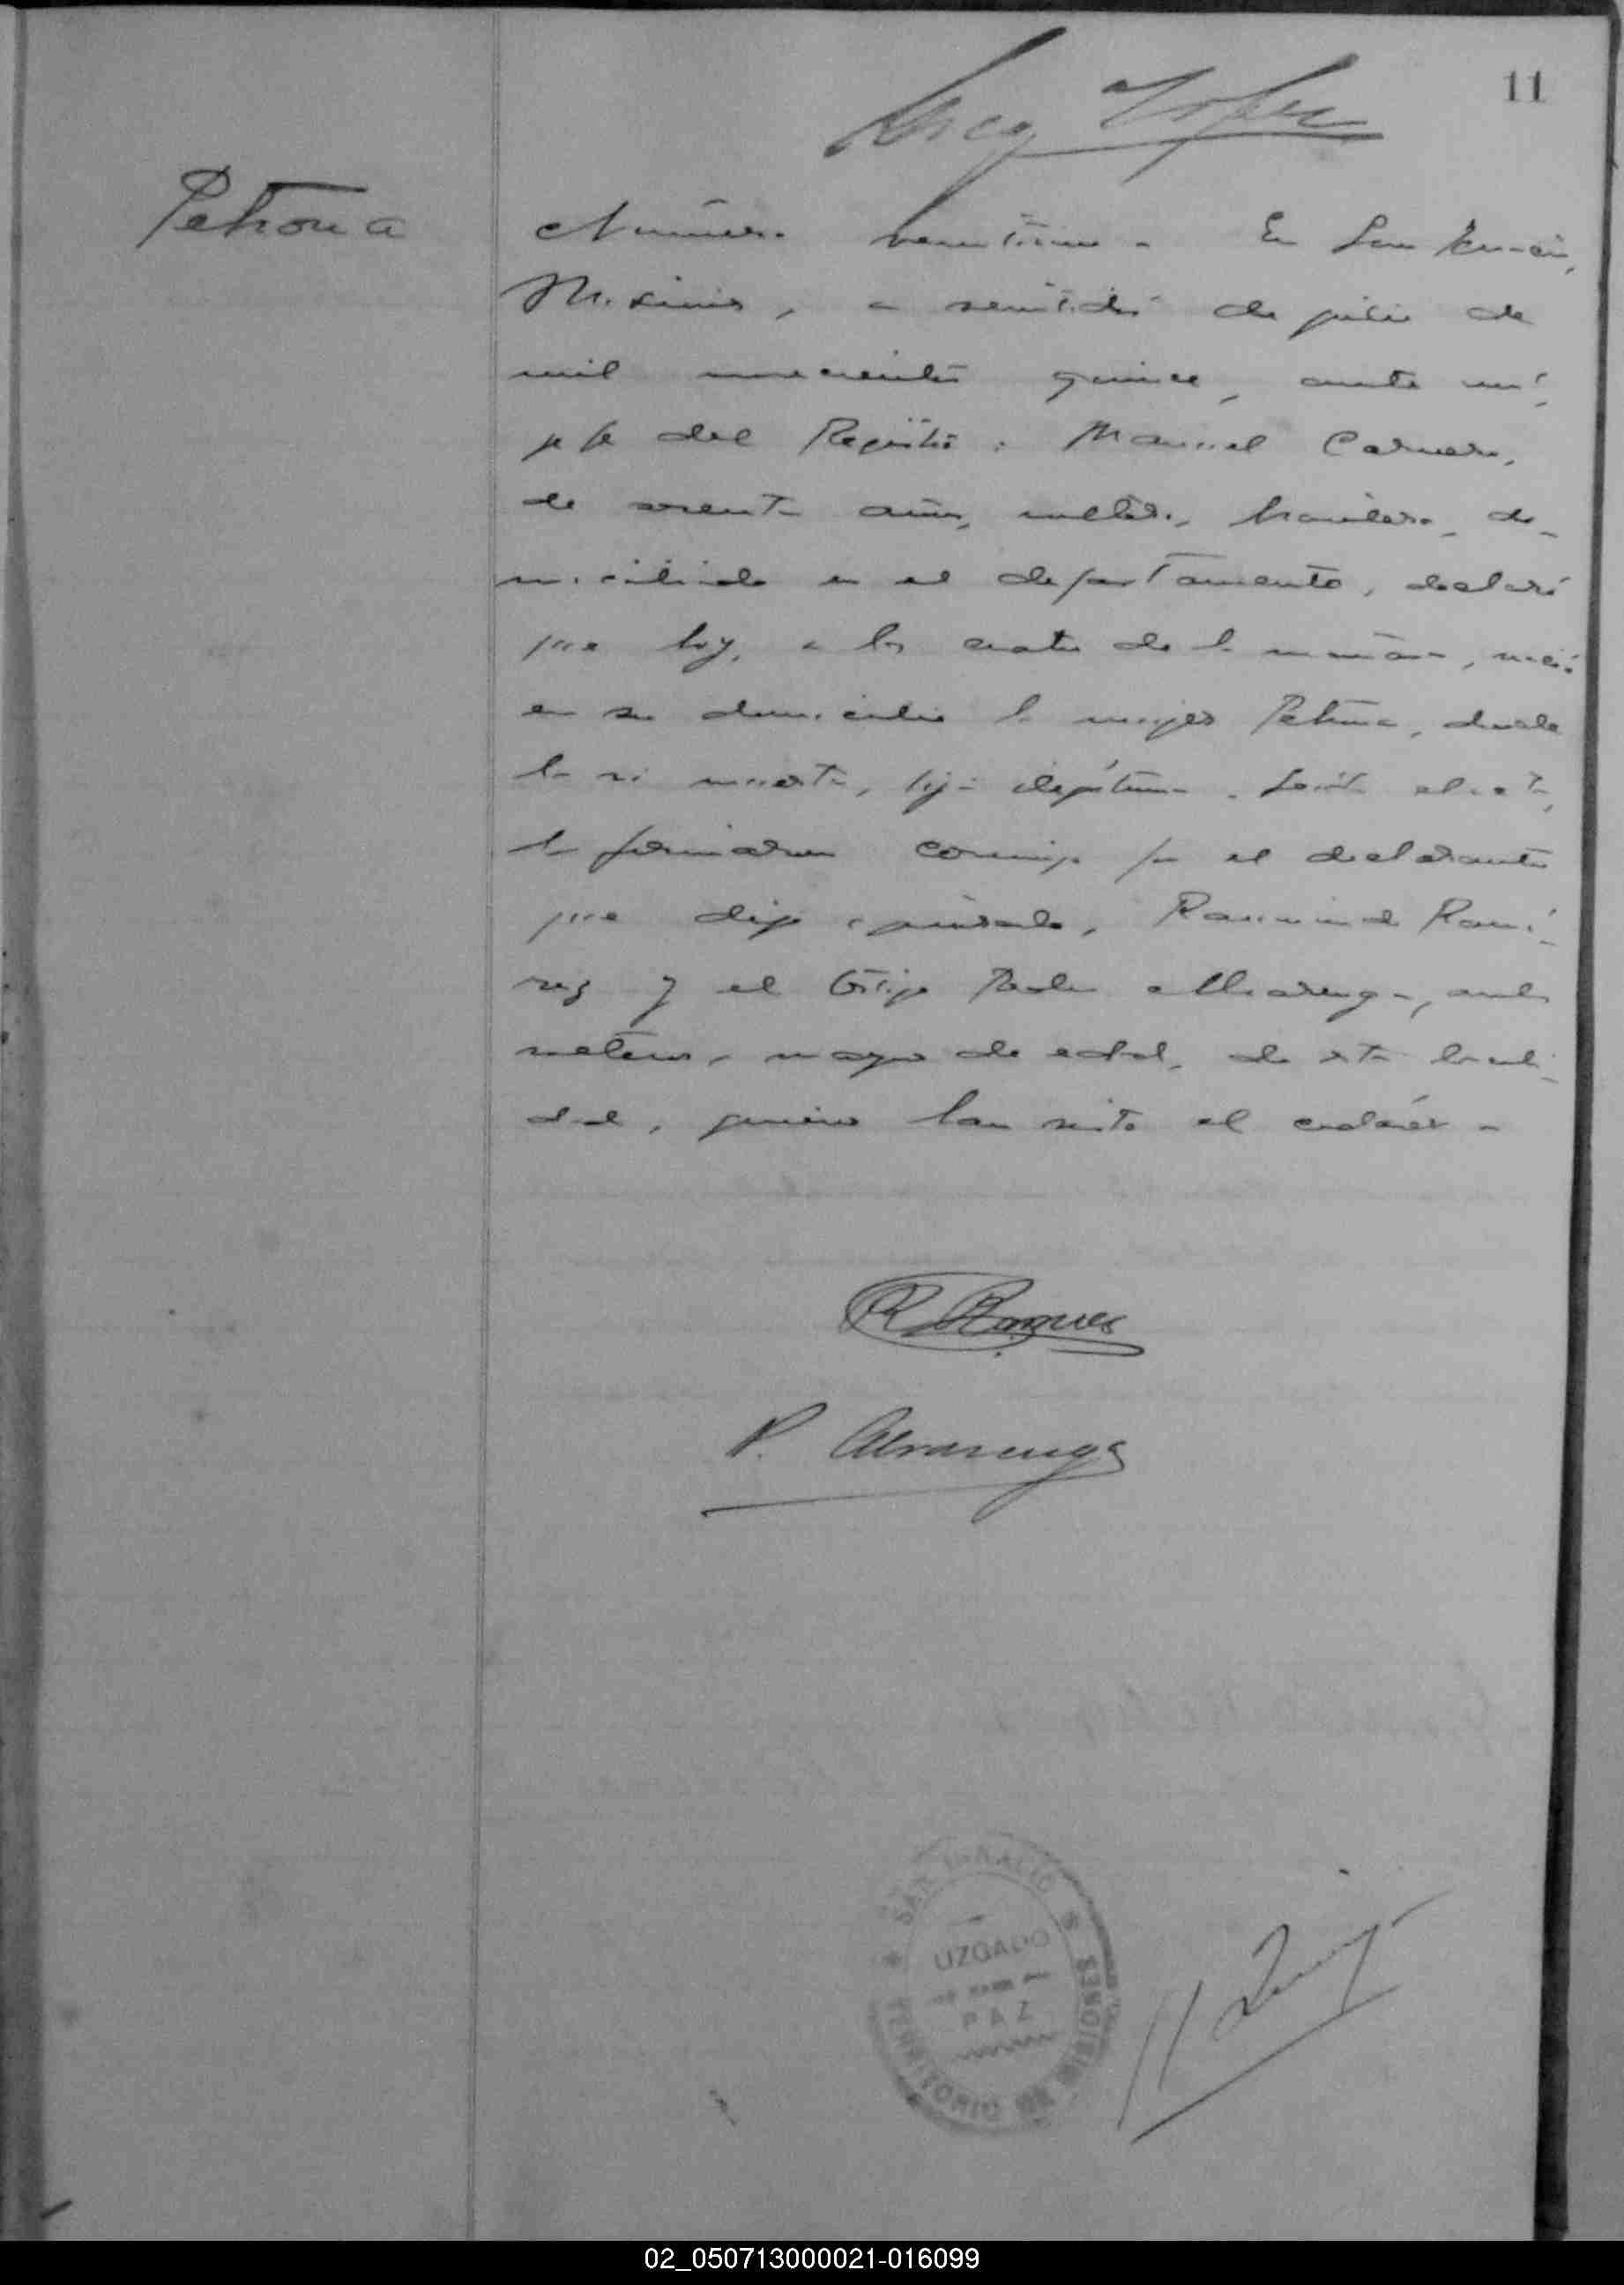 11
Petrona
Número veintiuno. En San Ignacio,
Misiones, a veintidós de julio de
mil novecientos quince, ante mí,
jefe del Registro: Manuel
de años, soltero, brasilero, do-
miciliado en el departamento, declaró
que hoy, a las cuatro de la mañana, nació
en su domicilio la mujer Petrona, dando
la ya muerta, hija ilegítima. Leída el acta,
la firmaron conmigo por el declarante
que dijo ignorarlo, Raimundo Ramí-
rez y el testigo Pedro Alvarenga, ambos
solteros, mayores de edad, de esta locali-
dad, quienes han visto el cadáver.
P. Alvarenga
SAN IGNACIO
JUZGADO
DE
PAZ
TERRITORIO DE MISIONES
02_050713000021-016099